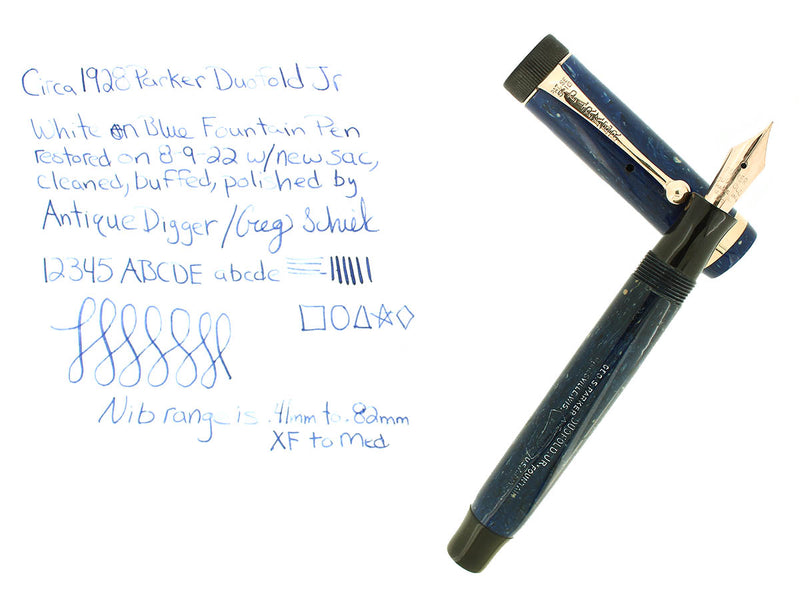 Circa 1928 Parker Duofold Jr
White on Blue Fountain Pen
restored on 8-9-22 w/new sac,
cleaned, buffed, polished by
Antique Digger / Greg
12345 ABCDE abcde
Nib range is .41mm to .82mm
XF to Med
GEO. S. PARKER DUOFOLD JR. FOUNTAIN